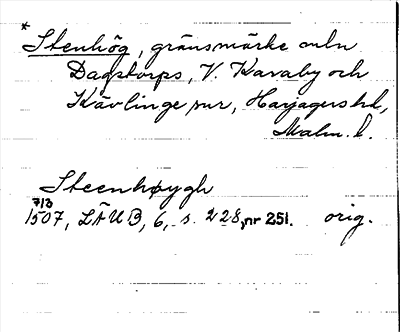 * Stenhög, gränsmärke mln
Dagstorps, V. Karaby och
Kävlinge snr, Harjagers hd,
Malm. l.
Steenhøygh
7/3
1507, LÄUB, 6, s. 228, nr 251. orig.